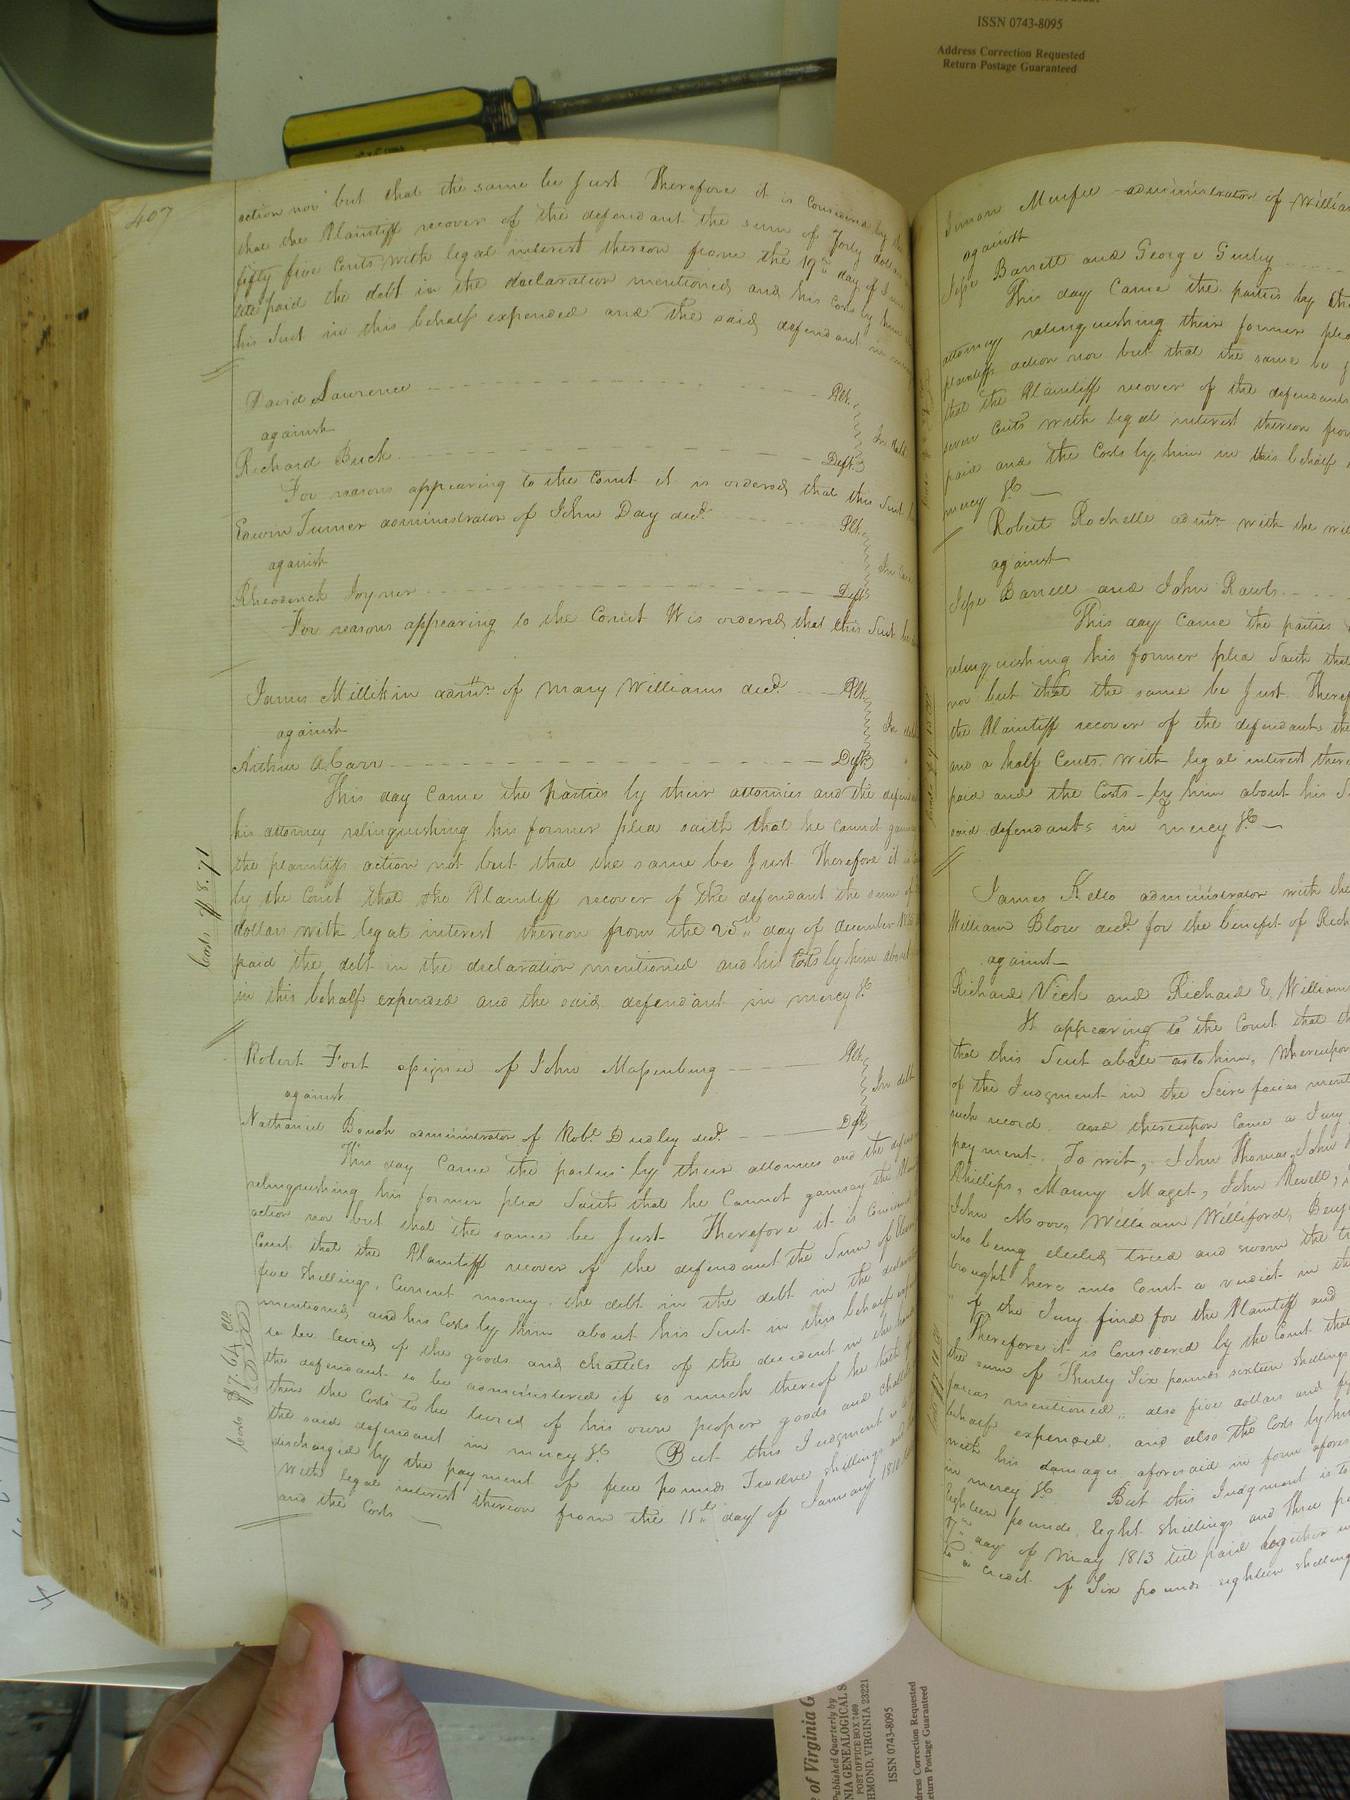 ISSN 0743-8095
Address Correction Requested
Return Postage Guaranteed
407
action nor but that the same be Just Therefore it is Considered by the
that the Plaintiff recover of the defendant the sum of Forty dollars
fifty five Cents with legal interest thereon from the 19th day of
paid the debt in the declaration mentioned and his Costs by him
his Suit in this behalf expended and the said defendant in mercy
David Lawrence Plt.
against
Richard Buck Deft
For reasons appearing to the Court it is ordered that this Suit
Edwin Turner administrator of John Day decd. Plt.
against
Rhoderick Joyner Deft
For reasons appearing to the Court it is ordered that this Suit be
James Millikin admr. of Mary Williams decd. Plt.
against
Arthur A. Carr Deft
This day Came the parties by their attornies and the defendant
his attorney relinquishing his former plea saith that he Cannot
the plaintiffs action not but that the same be Just Therefore it is
by the Court that the Plaintiff recover of the defendant the sum of
dollars with legal interest thereon from the 25th day of december
paid the debt in the declaration mentioned and his Costs by him about
in this behalf expended and the said defendant in mercy &c
Costs $8.71
Robert Fort assignee of John Massenburg Plt.
against In debt
Nathaniel Bough administrator of Robt. Dudley decd. Deft
This day Came the parties by their attornies and the
relinquishing his former plea Saith that he Cannot gainsay the
action nor but that the same be Just Therefore it is
Court that the Plaintiff recover of the defendant the Sum of
five Shillings, Current money, the debt in the debt in the declaration
mentioned and his Costs by him about his Suit in this behalf
to be levied of the goods and chattels of the decedent in the hands
the defendant to be administered if so much thereof he hath
then the Costs to be levied of his own proper goods and chattels
the said defendant in mercy &c But this Judgment is
discharged by the payment of five pounds Twelve shillings
with legal interest thereon from the 15th day of January 1810
and the Costs
Costs $7.64
Menfee administrator of William
against
Jesse Barrett and George Gurley
This day Came the parties by
attorney relinquishing their former plea
plaintiffs action nor but that the same be
that the Plaintiff recover of the defendants
seven Cents with legal interest thereon from
paid and the Costs by him in this behalf
mercy &c
Robert Rochelle admr. with the will
against
Jesse Barrett and John Rawls
This day Came the parties
relinquishing his former plea Saith that
nor but that the same be Just Therefore
the Plaintiff recover of the defendants the
and a half Cents. with legal interest
paid and the Costs by him about his
said defendants in mercy &c
James Kello administrator with the
William Blow decd. for the benefit of
against
Richard Vick and Richard E. Williams
It appearing to the Court that
that this Suit abate as to him, Whereupon
of the Judgment in the Scire facias
such record and thereupon Came a Jury
payment. To wit, John Thomas, John
Phillips, Manry Maget, John Newell,
John Moore, William Williford,
who being elected tried and sworn the
brought here into Court a verdict in
of the Jury find for the Plaintiff and
Therefore it is Considered by the Court that
the sum of Thirty Six pounds sixteen shillings
facias mentioned, also five dollars and
behalf expended, and also the Costs by
with his damages aforesaid in form
in mercy &c But this Judgment is to
Eighteen pounds, Eight shillings and three
day of May 1813 till paid together
to a credit of Six pounds eighteen shillings
of Virginia
Published Quarterly by
GENEALOGICAL
POST OFFICE BOX 7469
RICHMOND, VIRGINIA 23221
ISSN 0743-8095
Address Correction Requested
Return Postage Guaranteed